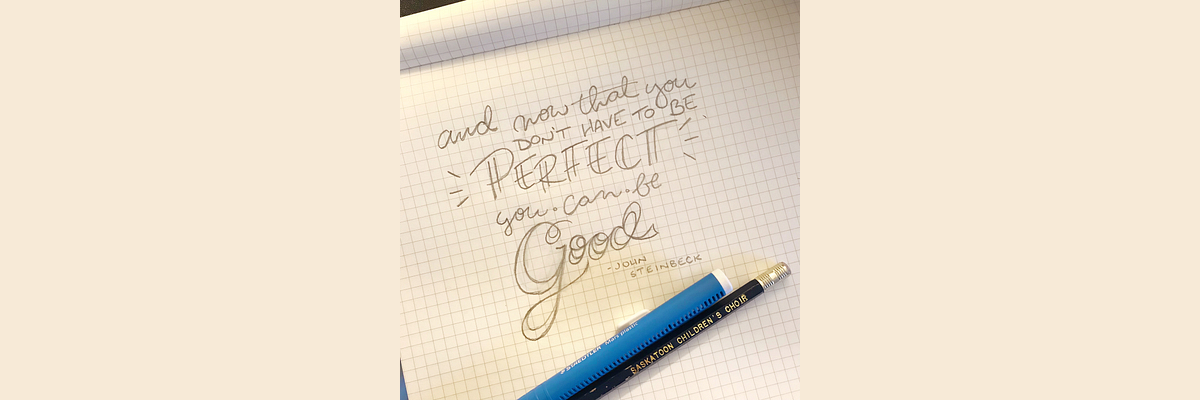 and now that you
DON'T HAVE TO BE
PERFECT
you · can · be
Good
- JOHN
STEINBECK
STAEDTLER Mars plastic
SASKATOON CHILDREN'S CHOIR